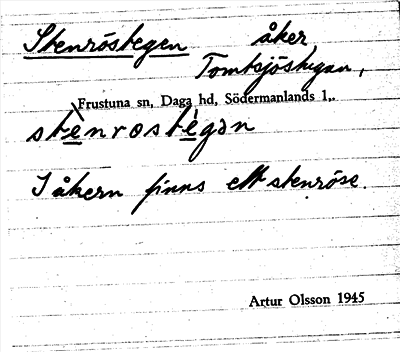 Stenröstegen åker
Tomtsjöstugan,
Frustuna sn, Daga hd, Södermanlands l.
stènrostégan
I åkern finns ett stenröse.
Artur Olsson 1945